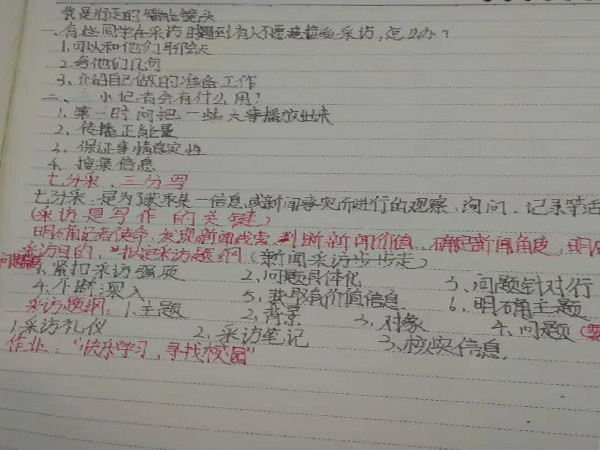 我是行走的智能镜头
一、有些同学在采访时遇到有人不愿意接受采访,怎么办?
1.可以和他们聊聊天
2.夸他们几句
3、介绍自己做的准备工作
二、小记者会有什么用?
1、第一时间把一些大事播放出来
2、传播正能量
3、保证事情真实性
4、搜集信息
七分采,三分写
七分采:是为了获取某一信息,或新闻事实而进行的观察、询问、记录等活
(采访是写作的关键)
明确记者使命、发现新闻线索、判断新闻价值、确定新闻角度、明确
采访目的,拟定采访题纲(新闻采访步步走)
问题 1.紧扣采访强项 2、问题具体化 3、问题针对行
4.不断深入 5、获取有价值信息 6、明确主题
采访题纲:1、主题 2、背景 3、对象 4、问题
1.采访礼仪 2、采访笔记 3、核实信息
作业:“快乐学习,寻找校园”